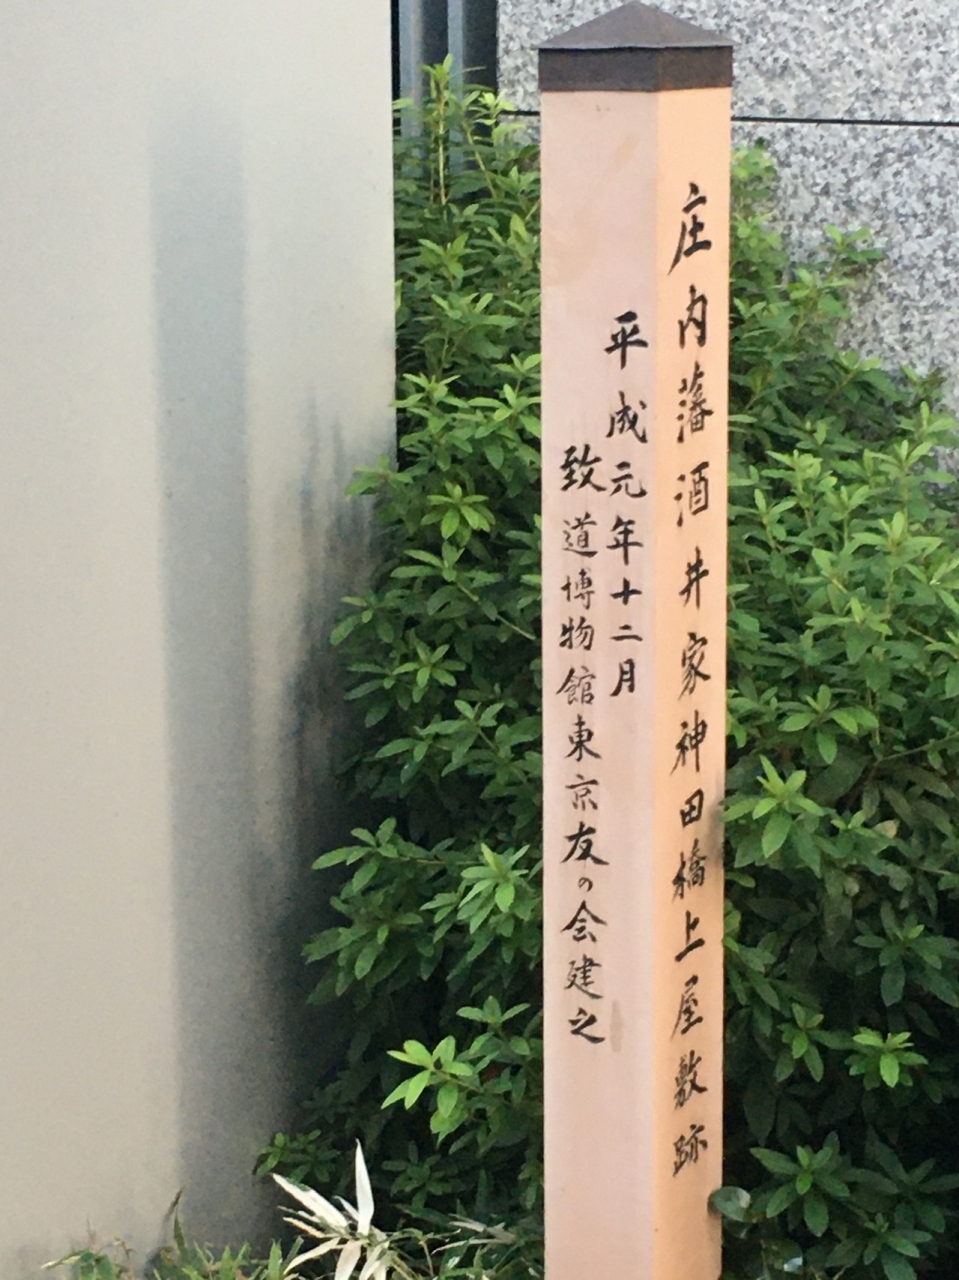 庄内藩酒井家神田橋上屋敷跡
平成元年十二月
致道博物館東京友の会建之